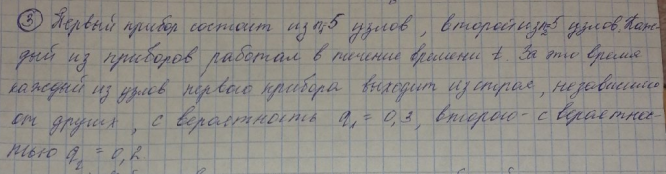 ③ Первый прибор состоит из n₁=5 узлов, второй из n₂=5 узлов. Каж-
дый из приборов работал в течение времени t. За это время
каждый из узлов первого прибора выходит из строя, независимо
от других, с вероятность q₁ = 0,3, второго - с вероятнос-
тью q₂ = 0,2.